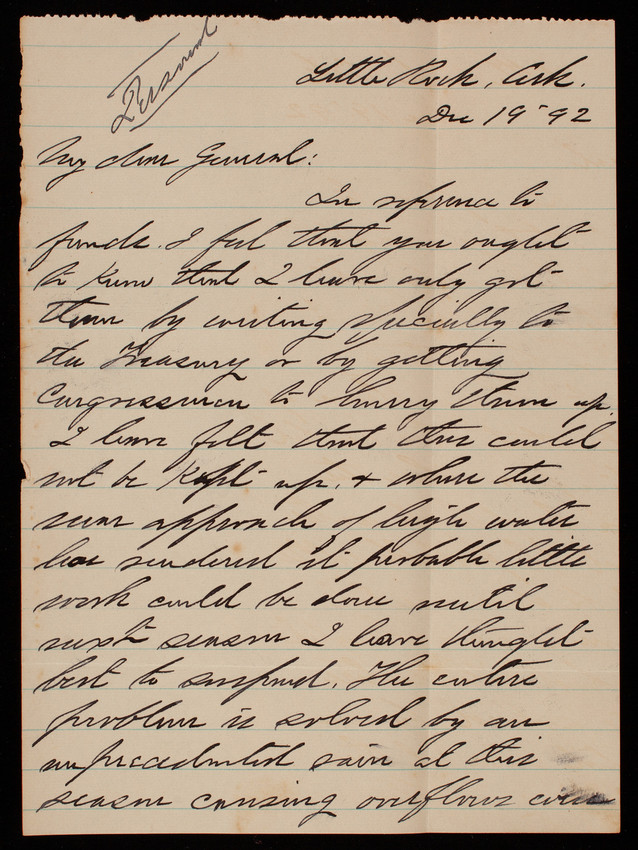 Personal
Little Rock, Ark.
Dec 19 '92
My dear General:
In reference to
funds. I feel that you ought
to know that I have only got
them by writing specially to
the Treasury or by getting
Congressmen to hurry them up.
I have felt that this could
not be kept up, & when the
near approach of high water
has rendered it probable little
work could be done until
next season I have thought
best to suspend. The entire
problem is solved by an
unprecedented rain at this
season causing overflows